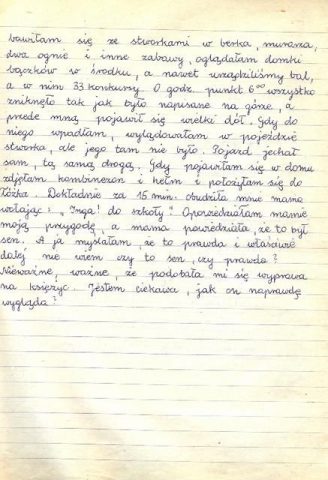 bawiłam się ze stworkami w berka, murarza,
dwa ognie i inne zabawy, oglądałam domki
bączków w środku, a nawet urządziliśmy bal,
a w nim 33 konkursy. O godz. punkt 6⁰⁰ wszystko
zniknęło tak jak było napisane na górze, a
przede mną pojawił się wielki dół. Gdy do
niego wpadłam, wylądowałam w pojeździe
stworka, ale jego tam nie było. Pojazd jechał
sam, tą samą drogą. Gdy pojawiłam się w domu
zdjęłam kombinezon i hełm i położyłam się do
łóżka. Dokładnie za 15 min. obudziła mnie mama
wołając: "Inga! do szkoły". Opowiedziałam mamie
moją przygodę, a mama powiedziała, że to był
sen. A ja myślałam, że to prawda i właściwie
dalej nie wiem czy to sen, czy prawda?
Nieważne, ważne, że podobała mi się wyprawa
na księżyc. Jestem ciekawa, jak on naprawdę
wygląda?